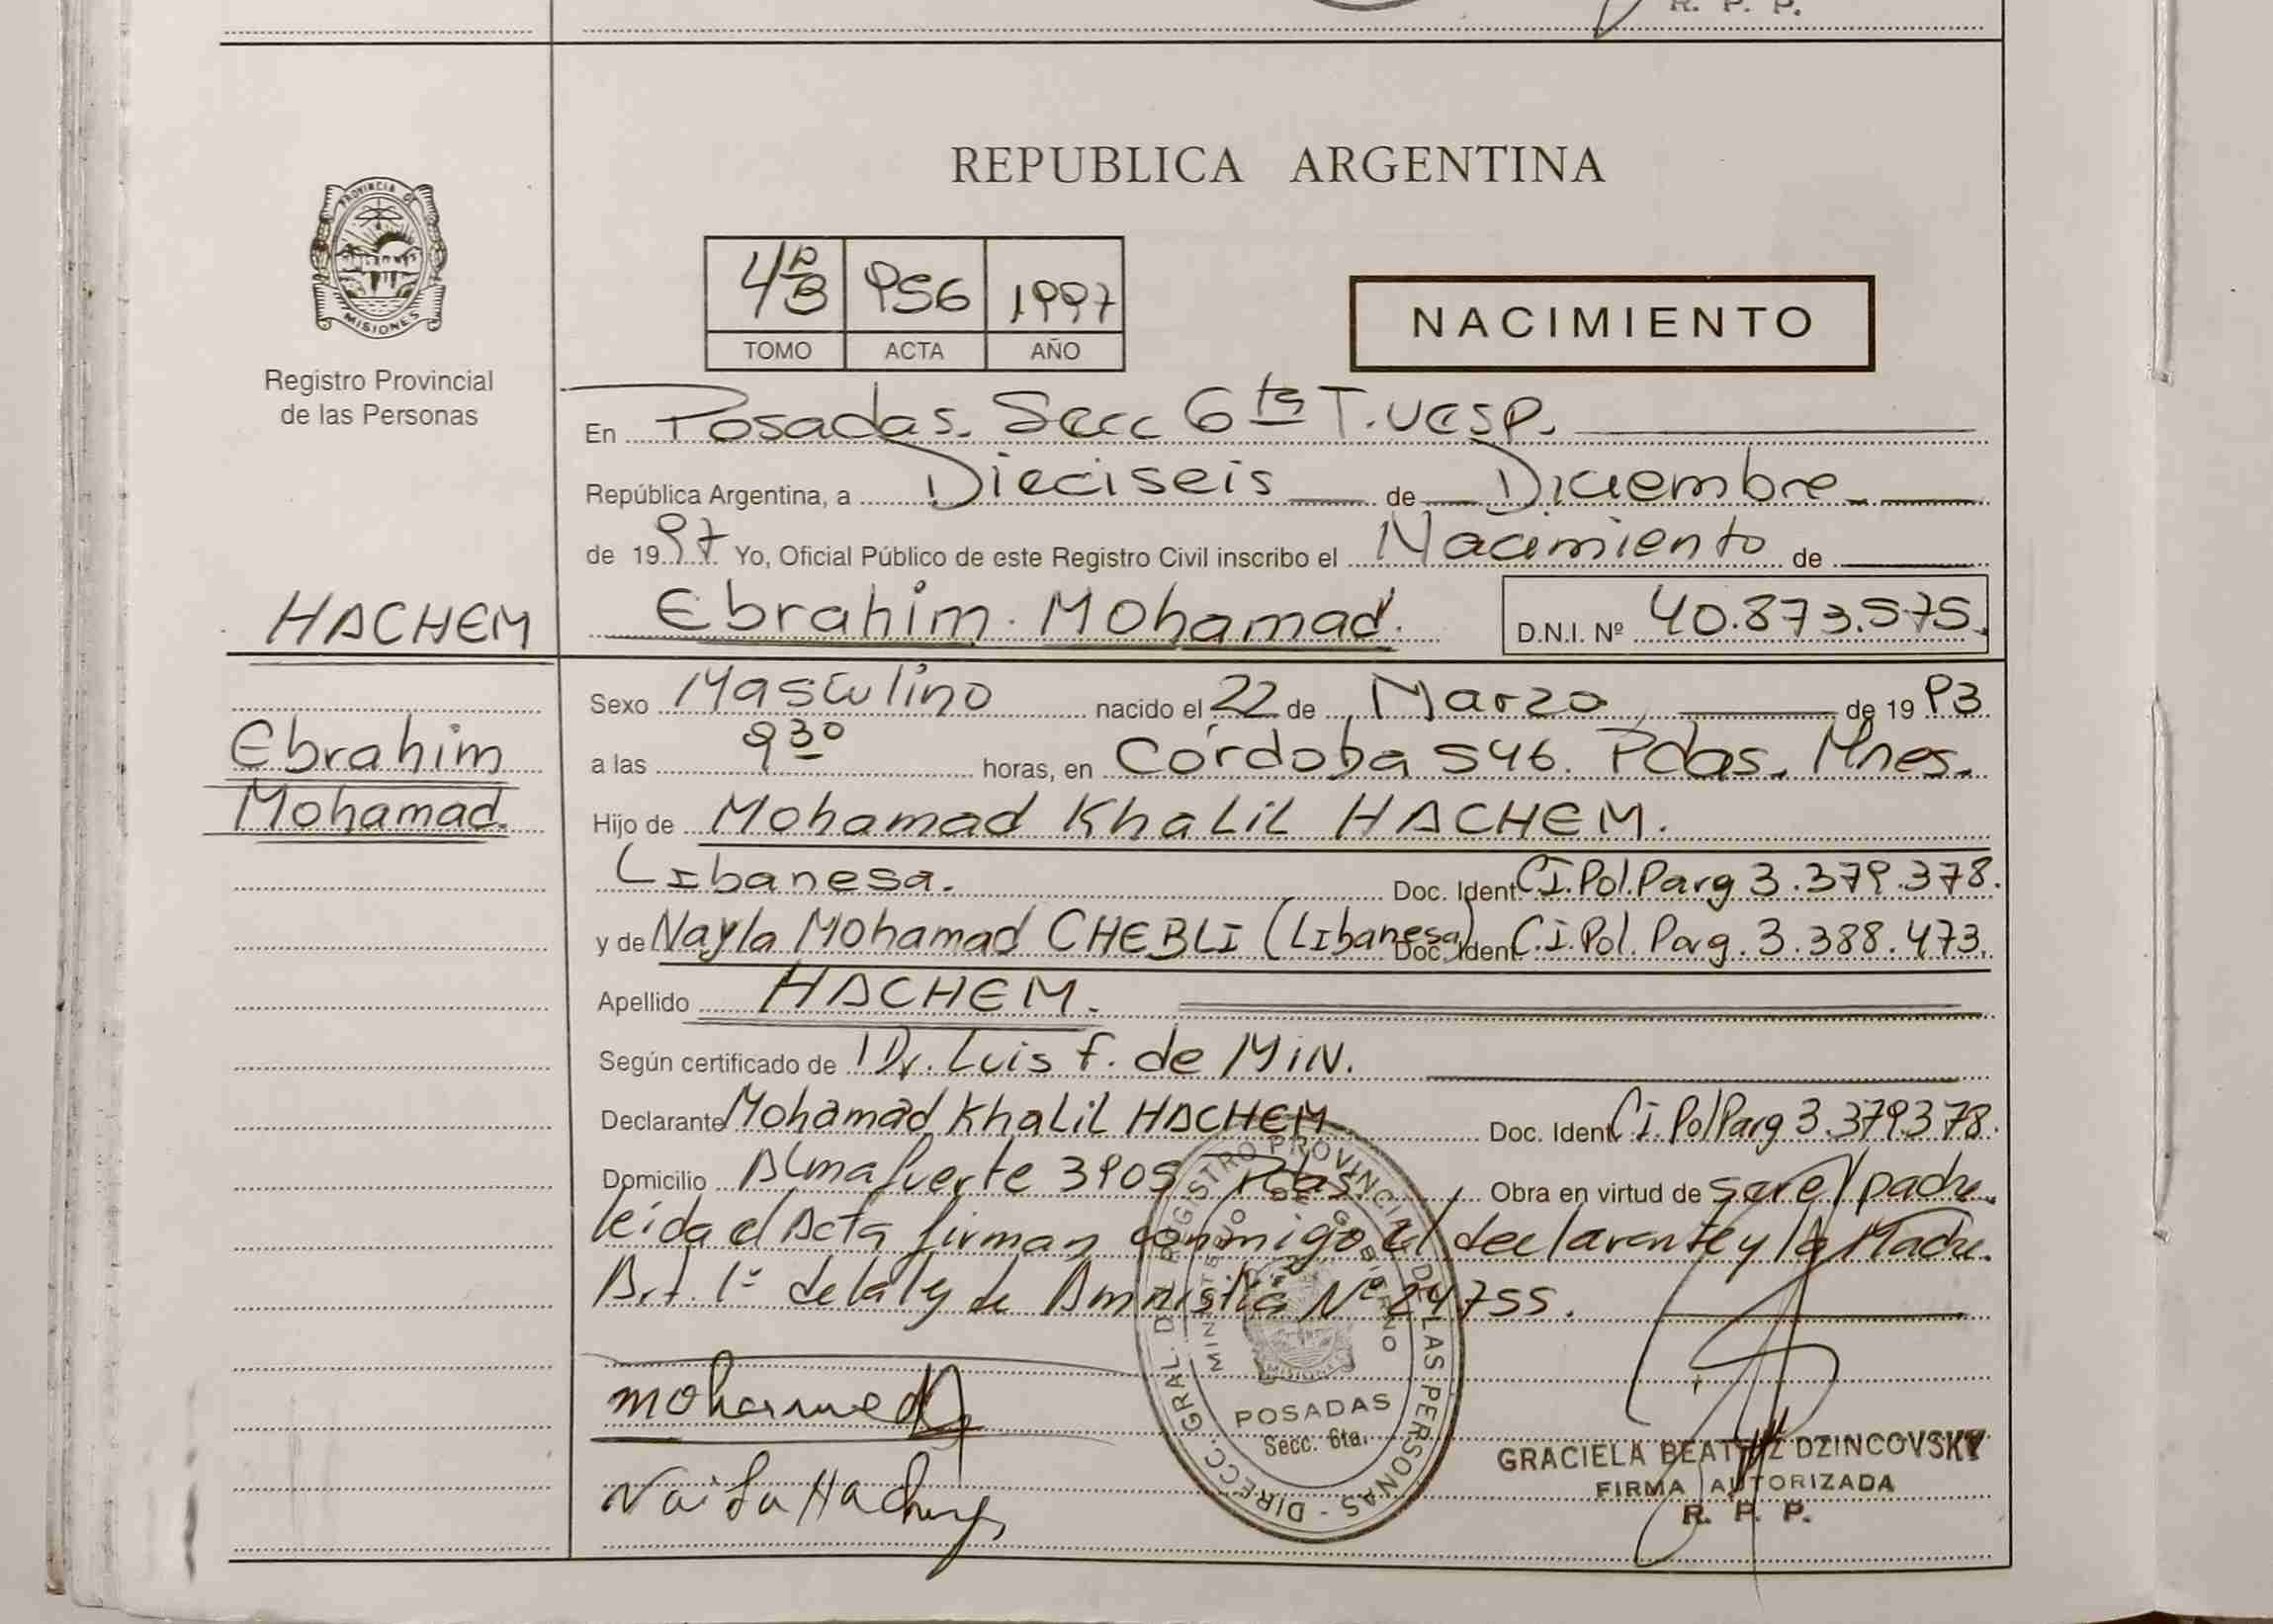 R. P. P.
REPUBLICA ARGENTINA
PROVINCIA DE
MISIONES
Registro Provincial
de las Personas
956 1997
TOMO ACTA AÑO
NACIMIENTO
En Posadas. Secc 6ta T. Vesp.
República Argentina, a Dieciseis de Diciembre
de 1997 Yo, Oficial Público de este Registro Civil inscribo el Nacimiento de
HACHEM
Ebrahim Mohamad.
D.N.I. Nº 40.873.575.
Ebrahim
Mohamad.
Sexo Masculino nacido el 22 de Marzo de 1993
a las 9 30 horas, en Córdoba 546. Pdas. Mnes.
Hijo de Mohamad Khalil HACHEM.
Libanesa. Doc. Ident. C.I. Pol. Parg 3.379.378.
y de Nayla Mohamad CHEBLI (Libanesa) Doc. Ident. C.I. Pol. Parg. 3.388.473.
Apellido HACHEM.
Según certificado de Dr. Luis F. de MIN.
Declarante Mohamad Khalil HACHEM Doc. Ident. C.I. Pol Parg 3.379.378.
Domicilio Almafuerte 3905 Pdas. Obra en virtud de ser el padre
leída el Acta firman conmigo el declarante y la Madre.
Art. 1º de la ley de Amnistía Nº 24755.
mohamed
DIRECC. GRAL. DEL REGISTRO PROVINCIAL DE LAS PERSONAS -
MINISTERIO DE GOBIERNO
POSADAS
Secc. 6ta.
GRACIELA BEATRIZ DZINCOVSKY
FIRMA AUTORIZADA
R. P. P.